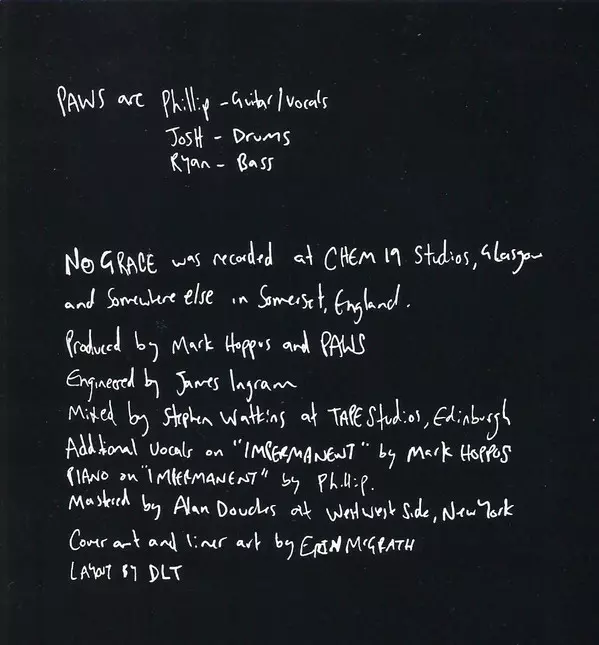 PAWS are Phillip - Guitar/Vocals
JOSH - Drums
Ryan - Bass
NO GRACE was recorded at CHEM 19 Studios, Glasgow
and Somewhere else in Somerset, England.
Produced by Mark Hoppus and PAWS
Engineered by James Ingram
Mixed by Stephen Watkins at TAPE Studios, Edinburgh
Additional Vocals on "IMPERMANENT" by Mark HOPPUS
PIANO on "IMPERMANENT" by Phillip.
Mastered by Alan Douches at West West Side, New York
Cover art and liner art by ERIN McGRATH
LAYOUT BY DLT